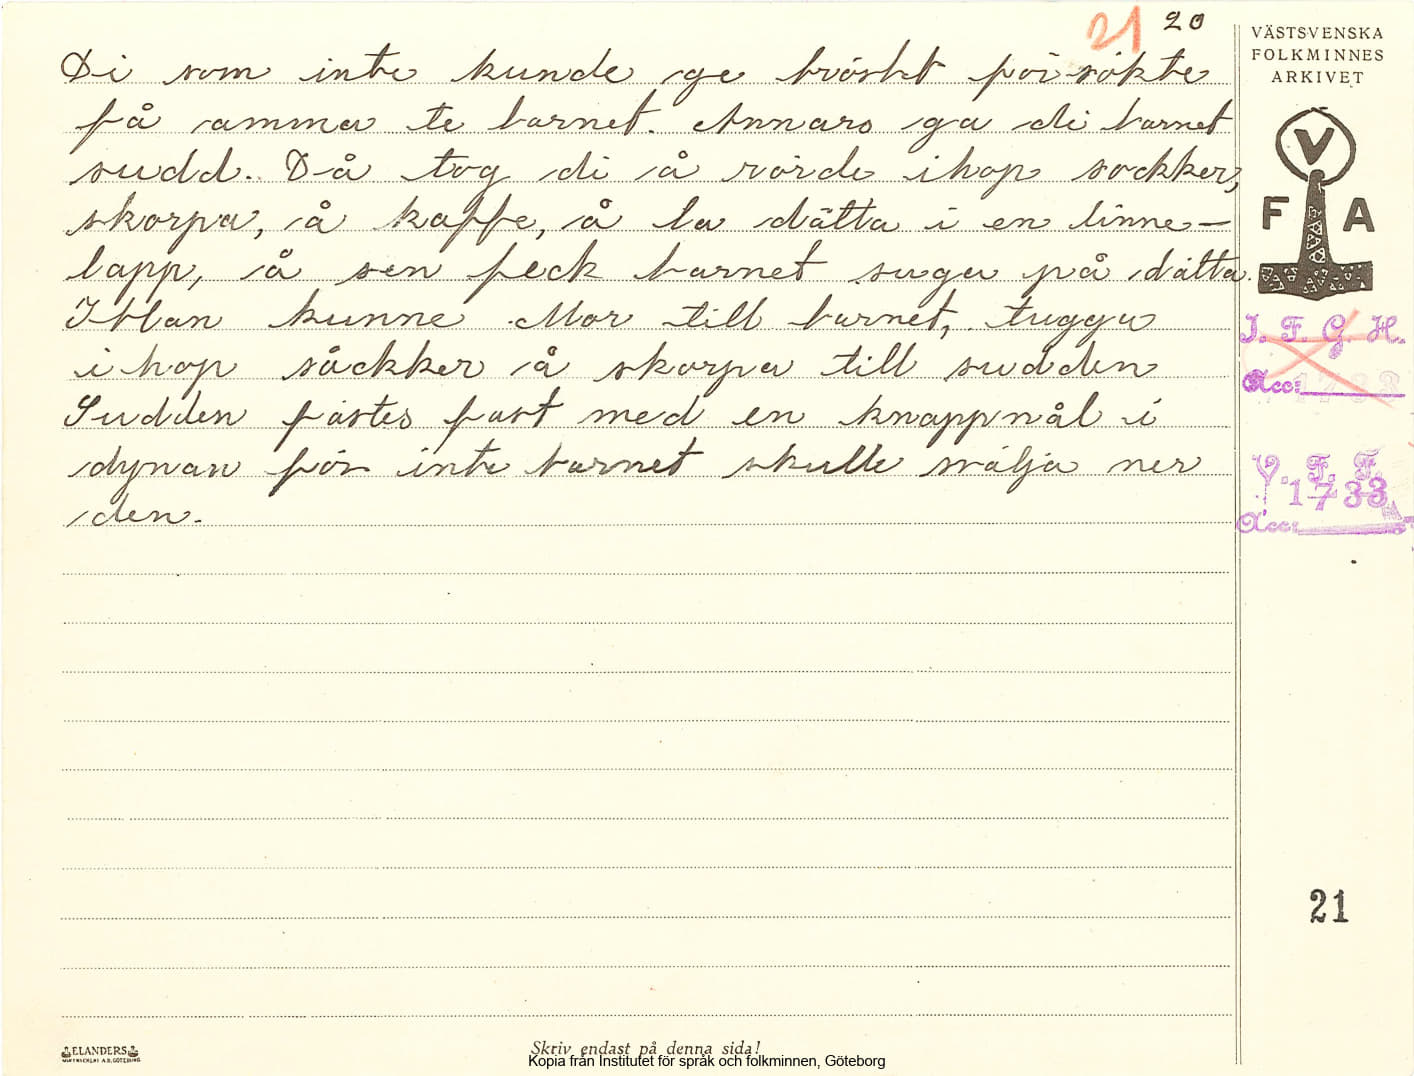 21 20
VÄSTSVENSKA
FOLKMINNES
ARKIVET
Di som inte kunde ge bröstet försökte
få amma te barnet. Annars ga di barnet
sudd. Då tog di å rörde ihop sockker,
skorpa, å kaffe, å la dätta i en linne-
lapp, å sen feck barnet suga på dätta.
Iblan kunne Mor till barnet, tugga
ihop såckker å skorpa till sudden
Sudden fästes fast med en knappnål i
dynan för inte barnet skulle svälja ner
den.
V
F A
I. F. G. H.
Acc:
V. F. F.
1733
Acc:
21
ELANDERS
Skriv endast på denna sida!
Kopia från Institutet för språk och folkminnen, Göteborg